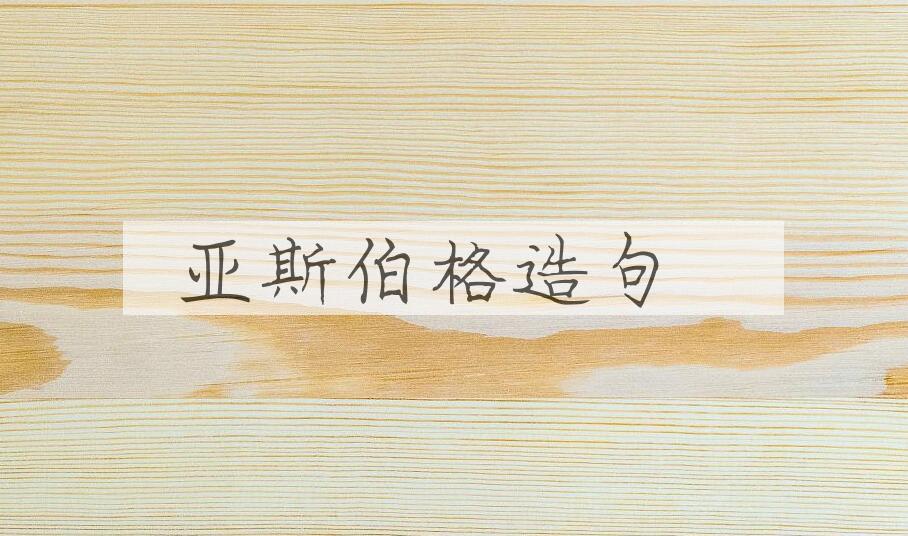 亚斯伯格造句